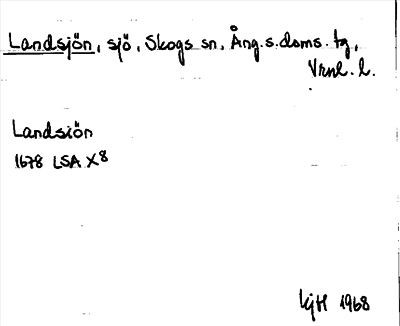 Landsjön, sjö, Skogs sn, Ång.s.doms. tg,
Vrnl. l.
Landsiön
1678 LSA X8
LjH 1968